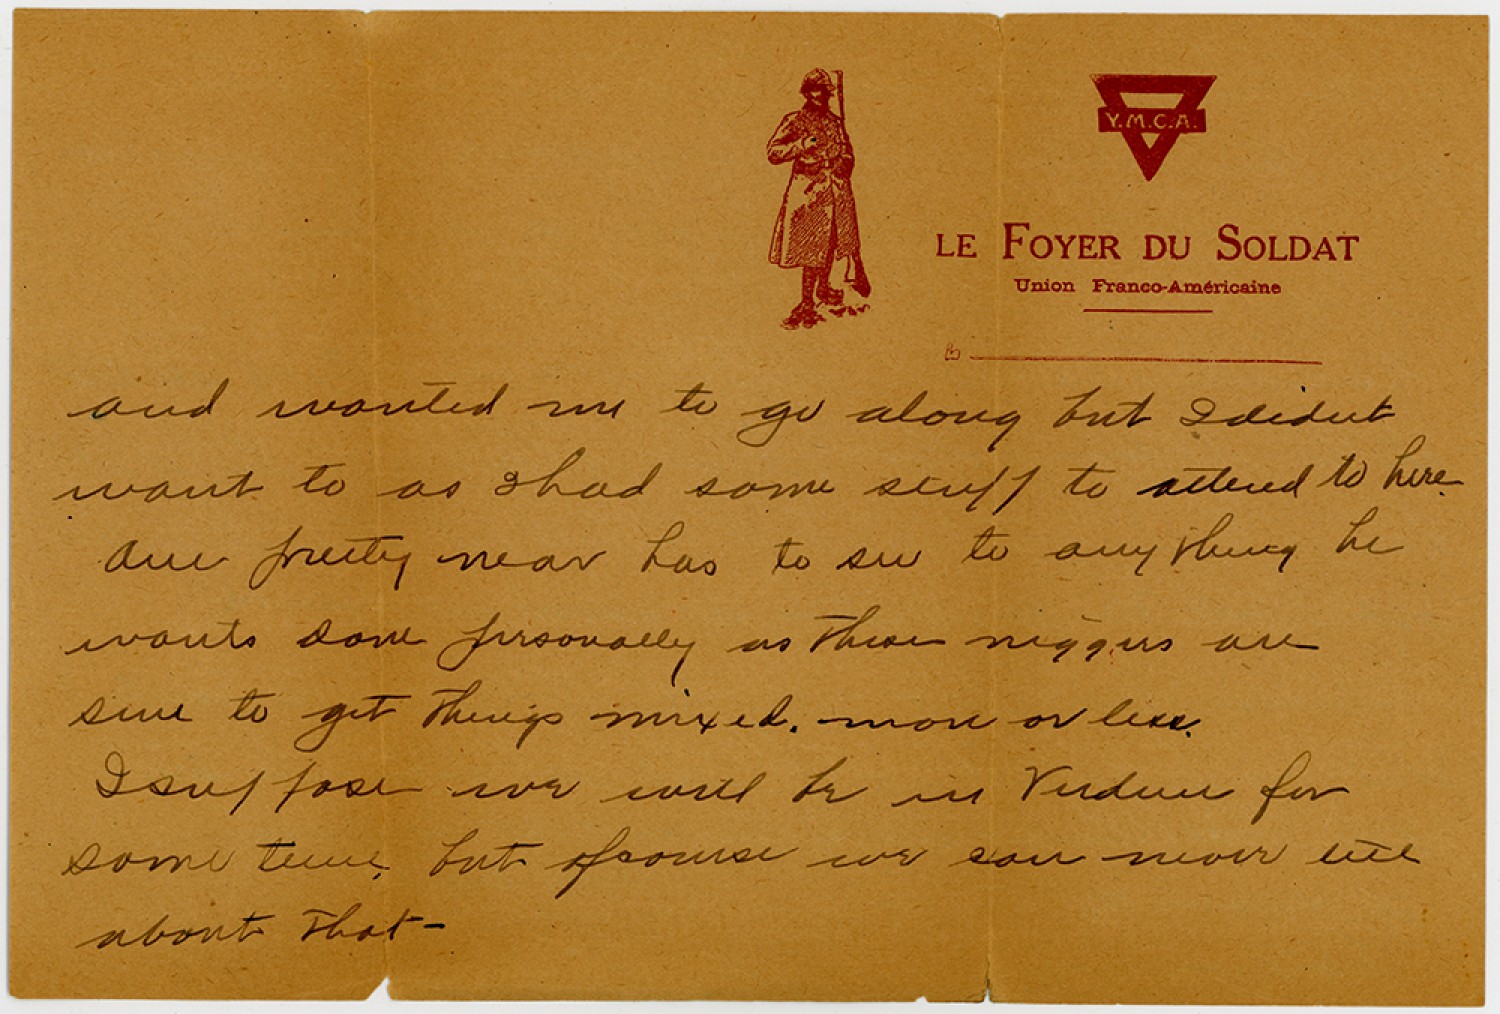 Y.M.C.A.
LE FOYER DU SOLDAT
Union Franco-Américaine
and wanted me to go along but I didn't
want to as I had some stuff to attend to here.
One pretty near has to see to anything he
wants done personally as these niggers are
sure to get things mixed. more or less.
I suppose we will be in Verdun for
some time, but ofcourse we can never tell
about that -